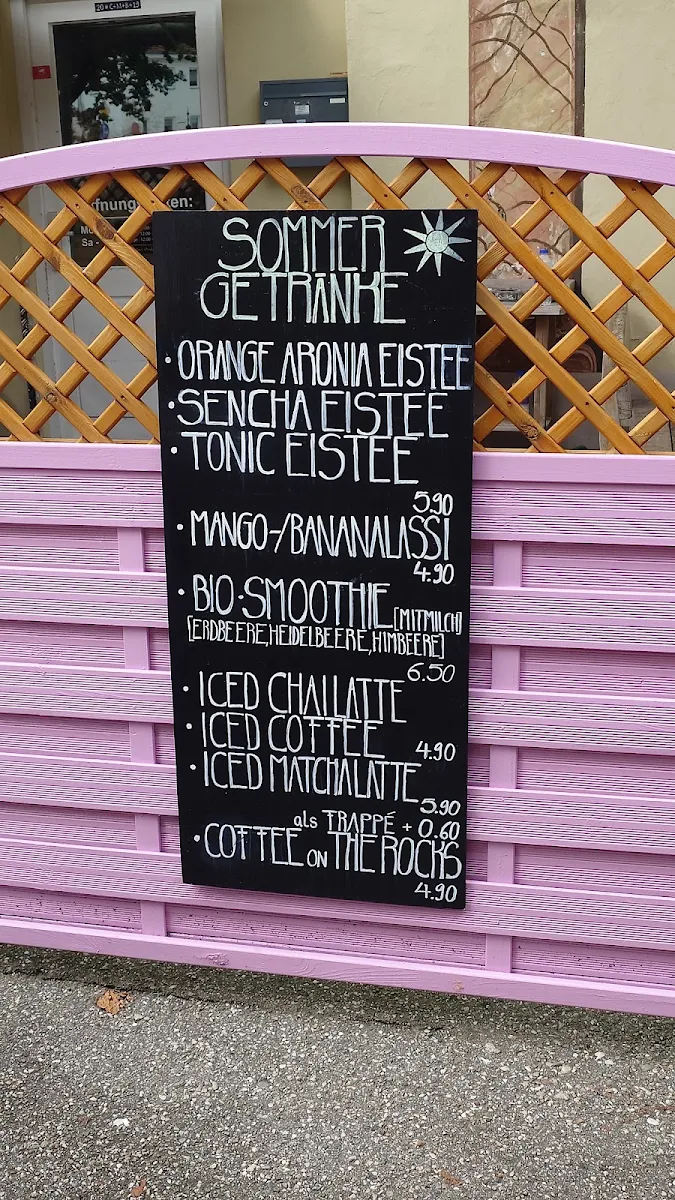 20*C+M+B+19
SOMMER
GETRÄNKE
· ORANGE ARONIA EISTEE
· SENCHA EISTEE
· TONIC EISTEE
5.90
· MANGO-/BANANALASSI
4.90
· BIO·SMOOTHIE [MITMILCH]
[ERDBEERE, HEIDELBEERE, HIMBEERE]
6.50
· ICED CHAI LATTE
· ICED COFFEE 4.90
· ICED MATCHALATTE
5.90
als FRAPPÉ + 0.60
· COFFEE ON THE ROCKS
4.90